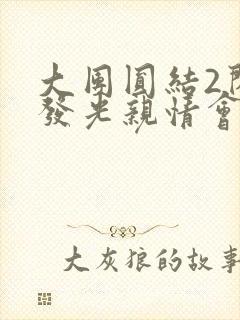 大团圆結2
發光親情會
大灰狼的故事